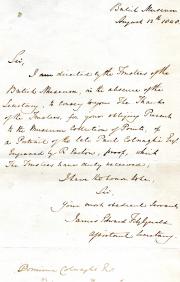 British Museum
August 13th 1840.
Sir,
I am directed by the Trustees of the
British Museum, in the absence of the
Secretary, to convey to you The Thanks
of the Trustees, for your obliging Present
to the Museum Collection of Prints, of
a Portrait of the late Paul Colnaghi Esqr
Engraved by R. proof, which
The Trustees have duly received;
I have the honor to be,
Sir,
Your most obedient Servant,
James Edward FitzGerald
Assistant Secretary.
Dominic Colnaghi Esqr